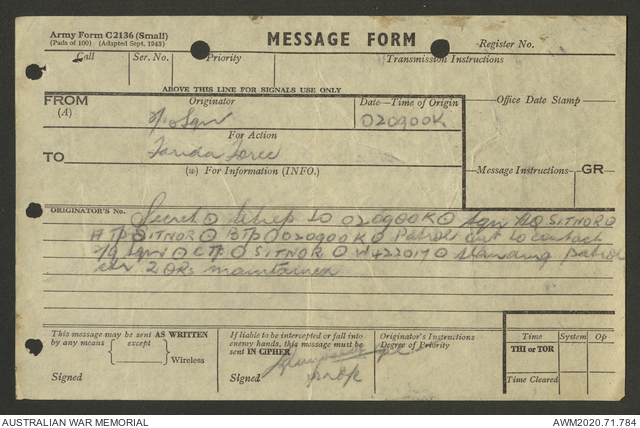 Army Form C2136 (Small)
(Pads of 100) (Adapted Sept. 1943)
MESSAGE FORM
Register No.
Call
Ser. No.
Priority
Transmission Instructions
ABOVE THIS LINE FOR SIGNALS USE ONLY
FROM
(A)
Originator
Date—Time of Origin
Office Date Stamp
Sqn
020900K
For Action
TO
Force
(w) For Information (INFO.)
Message Instructions
GR
ORIGINATOR'S No.
Secret ⊙ Sitrep to 020900K ⊙ Sqn HQ SITNOR ⊙
A Tp SITNOR ⊙ B Tp ⊙ 020900K ⊙ Patrol out to contact
2/9 Sqn ⊙ C Tp ⊙ SITNOR ⊙ W422017 ⊙ standing patrol
2 ORs maintained
This message may be sent AS WRITTEN
by any means
except
Wireless
Signed
If liable to be intercepted or fall into
enemy hands, this message must be
sent IN CIPHER
Signed
Originator's Instructions
Degree of Priority
Time
System
Op
THI or TOR
Time Cleared
AUSTRALIAN WAR MEMORIAL
AWM2020.71.784